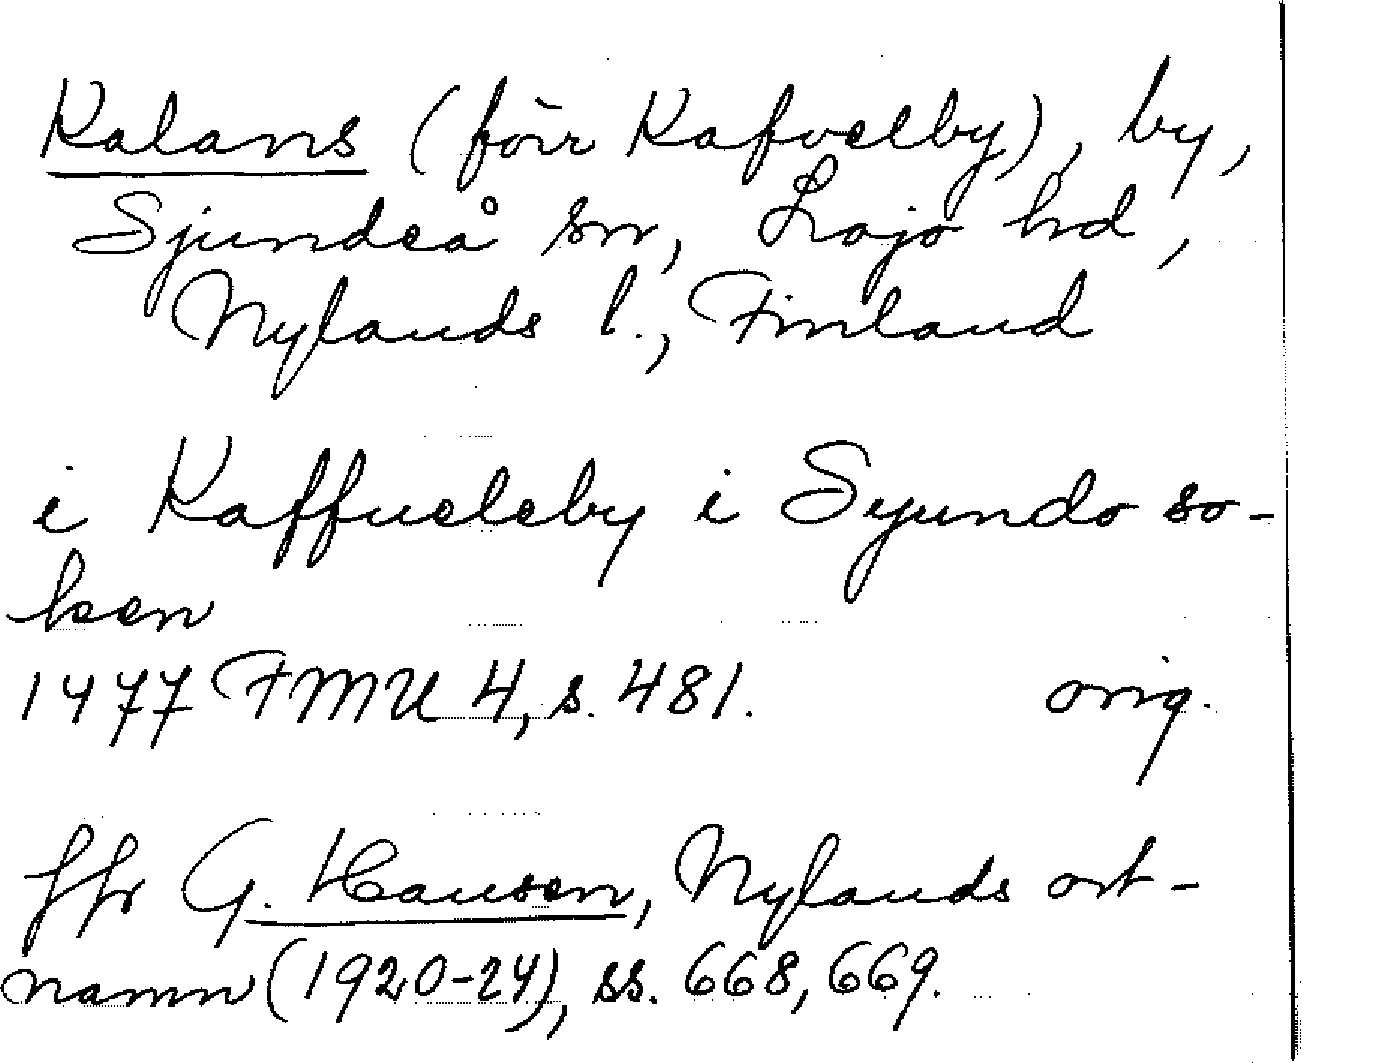 Kalans (förr Kafvelby), by,
Sjundeå sn, Lojo hd,
Nylands l., Finland
i Kaffueleby i Syundo so-
ken
1477 FMU 4, s. 481. orig.
Jfr G. Hausen, Nylands ort-
namn (1920-24), ss. 668, 669.